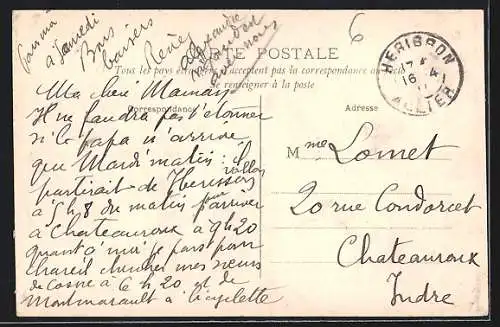 à Samedi
Bons
baisers
René
CARTE POSTALE
Tous les pays étrangers n'acceptent pas la correspondance au recto
Se renseigner à la poste
Correspondance
Adresse
HERISSON
16 - 4
ALLIER
6
Ma chère Maman
Il ne faudra pas t'étonner
si le papa n'arrive
que Mardi matin : il
partirait de Herisson
à 5h8 du matin pour arriver
à Chateauroux à 9h20
quant à moi je pars pour
chercher mes sœurs
de Cosne à 6h20 et de
Montmarault à bicyclette
Mme Lomet
20 rue Condorcet
Chateauroux
Indre